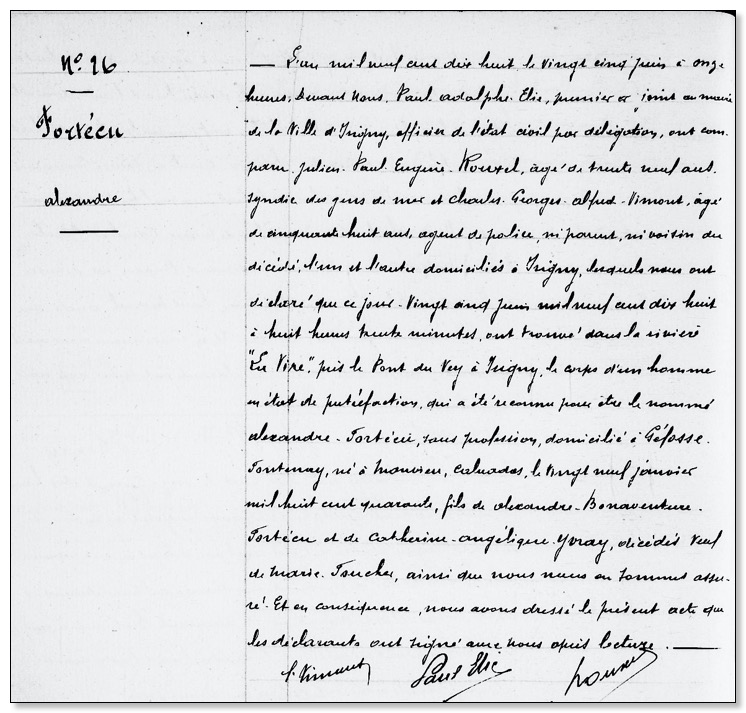 N° 26
Tortécu
alexandre
— L'an mil neuf cent dix huit le vingt cinq juin à onze
heures, Devant Nous, Paul adolphe Elie, premier adjoint au maire
de la Ville d'Isigny, officier de l'état civil par délégation, ont com-
paru Julien Paul Eugène Rouxel, âgé de trente neuf ans,
syndic des gens de mer et Charles Georges alfred Vimont, âgé
de cinquante huit ans, agent de police, ni parent, ni voisin du
décédé, l'un et l'autre domiciliés à Isigny, lesquels nous ont
déclaré que ce jour Vingt cinq juin mil neuf cent dix huit
à huit heures trente minutes, ont trouvé dans la rivière
"La Vire", près le Pont du Vey à Isigny, le corps d'un homme
en état de putréfaction, qui a été reconnu pour être le nommé
alexandre Tortécu, sans profession, domicilié à Géfosse-
Fontenay, né à Manvieu, Calvados, le vingt neuf janvier
mil huit cent quarante, fils de alexandre Bonaventure
Tortécu et de Catherine angélique Yvray, décédés veuf
de Marie Foucher, ainsi que nous nous en sommes assu-
ré. Et en conséquence, nous avons dressé le présent acte que
les déclarants ont signé avec nous après lecture. —
C. Vimont Paul Elie Rouxel